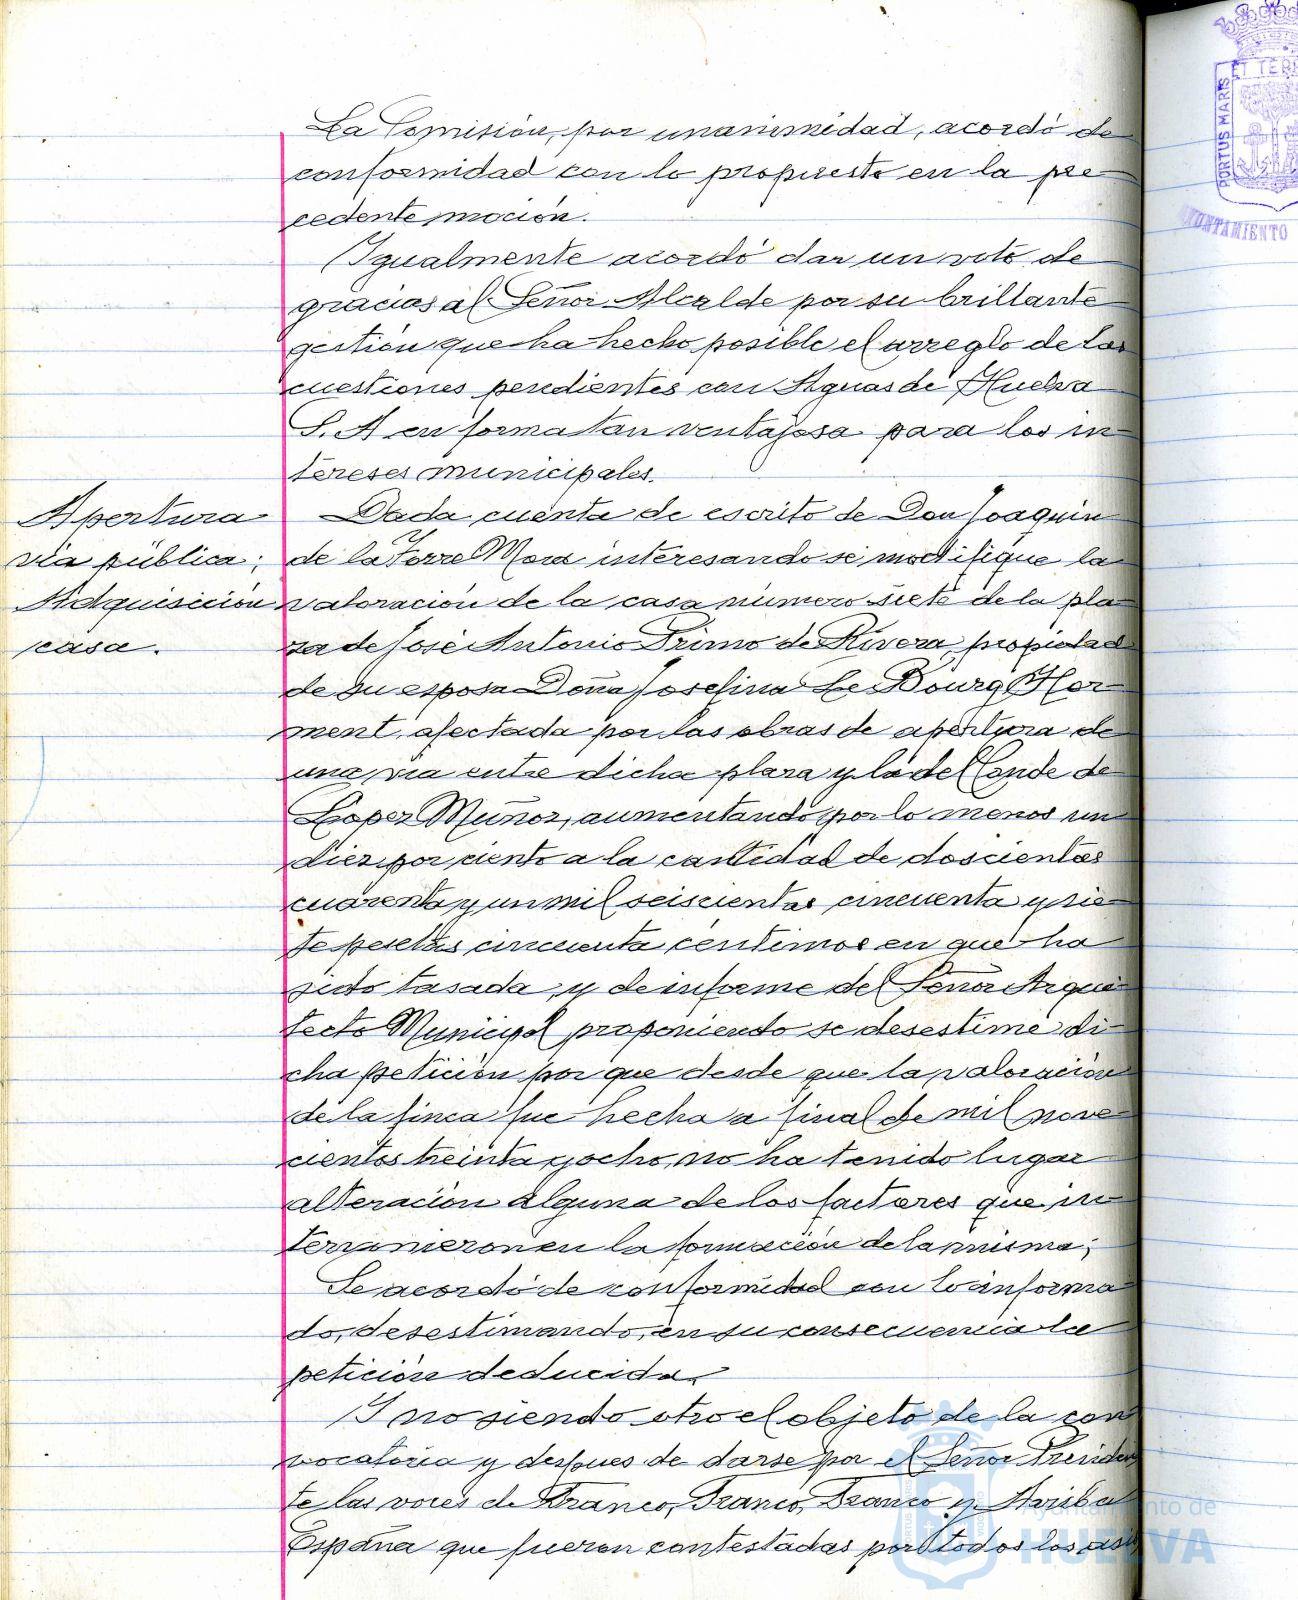 La Comisión, por unanimidad, acordó de
conformidad con lo propuesto en la pre
cedente moción.
Igualmente acordó dar un voto de
gracias al Señor Alcalde por su brillante
gestión que ha hecho posible el arreglo de las
cuestiones pendientes con Aguas de Huelva
S.A en forma tan ventajosa para los in-
tereses municipales.
Apertura
vía pública;
Adquisición
casa.
Dada cuenta de escrito de Don Joaquin
de la Torre Mora interesando se modifique la
valoración de la casa número siete de la pla-
za de José Antonio Primo de Rivera, propiedad
de su esposa Doña Josefina Le Bourg Her-
ment, afectada por las obras de apertura de
una via entre dicha plaza y la del Conde de
López Muñoz, aumentando por lo menos un
diez por ciento a la cantidad de doscientas
cuarenta y un mil seiscientas cincuenta y sie-
te pesetas cincuenta céntimos en que ha
sido tasada, y de informe del Señor Arqui-
tecto Municipal proponiendo se desestime di-
cha petición por que desde que la valoración
de la finca fue hecha a final de mil nove-
cientos treinta y ocho, no ha tenido lugar
alteración alguna de los factores que in-
tervinieron en la formación de la misma;
Se acordó de conformidad con lo informa-
do, desestimando, en su consecuencia la
petición deducida.
Y no siendo otro el objeto de la con
vocatoria y despues de darse por el Señor Presiden
te las voces de Franco, Franco, Franco y Arriba
España que fueron contestadas por todos los asis
PORTUS MARIS
ET TER
AYUNTAMIENTO
Ayuntamiento de
HUELVA